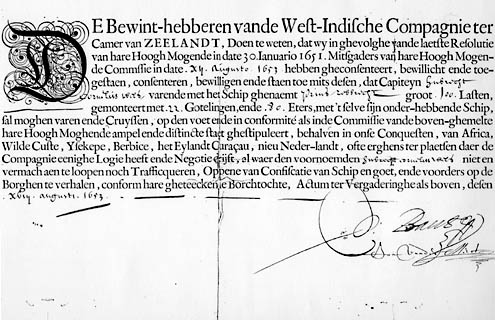 DE Bewint-hebberen vande West-Indische Compagnie ter
Camer van ZEELANDT, Doen te weten, dat wy in ghevolghe vande laetste Resolutie
van hare Hoogh Mogende in date 30. Ianuario 1651. Mitsgaders van hare Hoogh Mogen-
de Commssie in date xij. Augusto 1653 hebben gheconsenteert, bewillicht ende toe-
gestaen, consenteren, bewilligen ende staen toe mits desen, dat Capiteyn
varende met het Schip ghenaemt groot 100. Lasten,
gemonteert met 22. Gotelingen, ende 80. Eters, met 't selve sijn onder-hebbende Schip,
sal moghen varen ende Cruyssen, op den voet ende in conformité als inde Commissie vande boven-ghemelte
hare Hoogh Moghende ampel ende distincte staet ghestipuleert, behalven in onse Conquesten, van Africa,
Wilde Custe, Ysekepe, Berbice, het Eylandt Caraçau, nieu Neder-landt, ofte erghens ter plaetsen daer de
Compagnie eenighe Logie heeft ende Negotie drijft, al waer den voornoemden niet en
vermach aen te loopen noch Trafficqueren, Oppene van Confiscatie van Schip en goet, ende voorders op de
Borghen te verhalen, conform hare gheteeckende Borchtochte, Actum ter Vergaderinghe als boven, desen
augusti 1653.